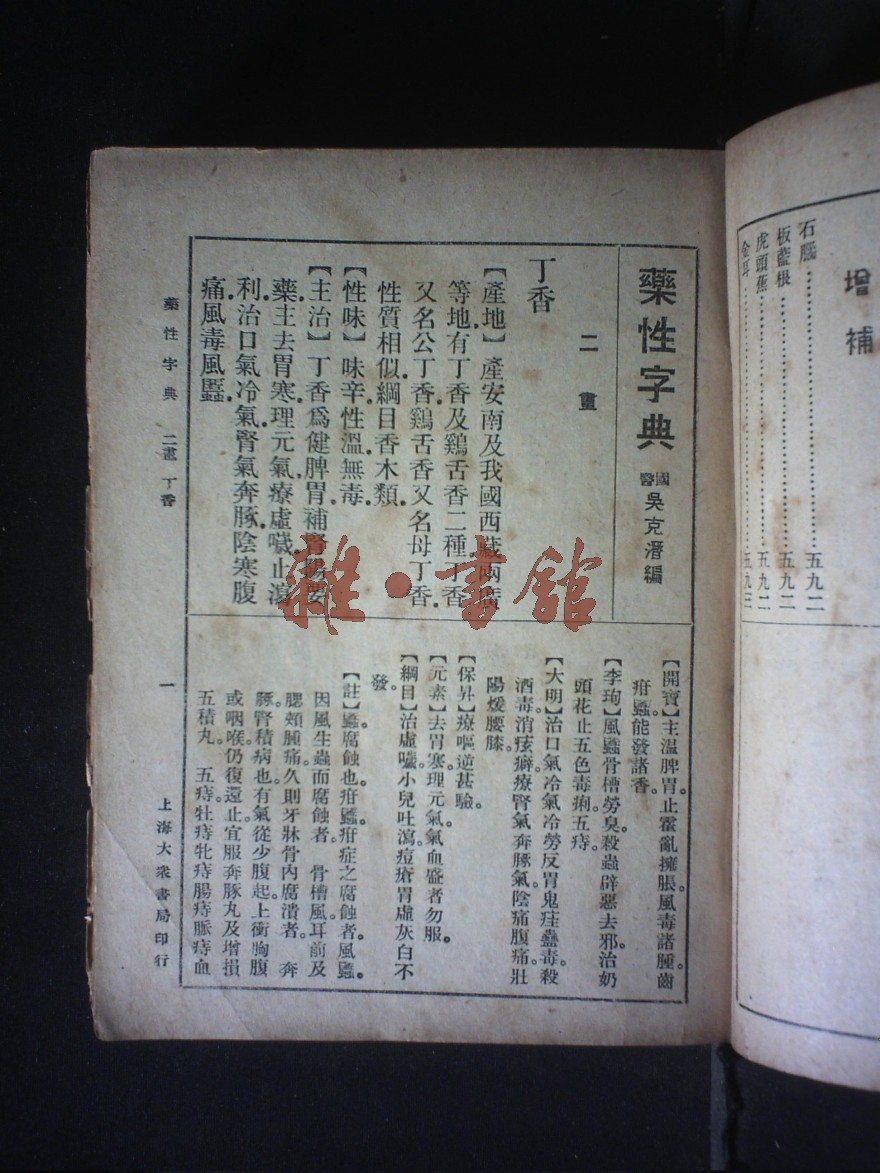 增補
石腦…………五九二
板藍根…………五九二
虎頭蕉…………五九二
金耳…………五九三
藥性字典
國醫吳克潛編
二畫
丁香
【產地】產安南及我國西藏兩廣
等地有丁香及鷄舌香二種丁香
又名公丁香鷄舌香又名母丁香
性質相似綱目香木類
【性味】味辛性溫無毒
【主治】丁香爲健脾胃補腎陽要
藥主去胃寒理元氣療虛噦止瀉
利治口氣冷氣腎氣奔豚陰寒腹
痛風毒風䘌
【開寶】主温脾胃止霍亂擁脹風毒諸腫齒
疳䘌能發諸香。
【李珣】風䘌骨槽勞臭殺蟲辟惡去邪治奶
頭花止五色毒痢五痔。
【大明】治口氣冷氣冷勞反胃鬼疰蠱毒殺
酒毒消痃癖療腎氣奔豚氣陰痛腹痛壯
陽煖腰膝
【保昇】療嘔逆甚驗。
【元素】去胃寒理元氣氣血盛者勿服。
【綱目】治虛噦小兒吐瀉痘瘡胃虛灰白不
發。
【註】䘌腐蝕也疳䘌疳症之腐蝕者風䘌
因風生蟲而腐蝕者 骨槽風耳前及
腮頰腫痛久則牙牀骨內腐潰者 奔
豚腎積病也有氣從少腹起上衝胸腹
或咽喉仍復還止宜服奔豚丸及增損
五積丸 五痔牡痔牝痔腸痔脈痔血
藥性字典 二畫 丁香
一
上海大衆書局印行
雜·書館